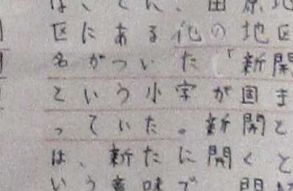 は、
区にある他の地区
名がついた「新開
という小字が固ま
っていた。新開と
は、新たに開くと
いう意味で